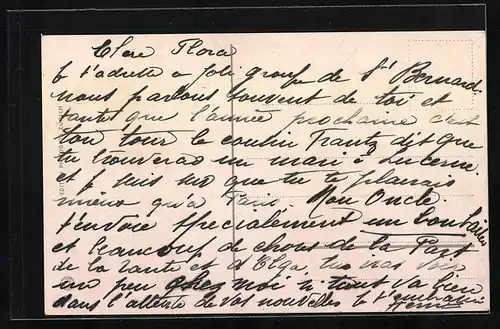 Chere Flora
je t'adresse ce joli groupe de St Bernard.
nous parlons souvent de toi et
tante que l'année prochaine c'est
ton tour le cousin Frantz dit que
tu trouveras un mari à Lucerne
et je suis sur que tu te plairais
mieux qu'à Paris. Mon Oncle
t'envoie specialement un bon baiser
et beaucoup de choses de la Part
de la tante et d'Olga, tu vas voir
un peu chez moi si tout va bien
dans l'attente de vos nouvelles je t'embrasse